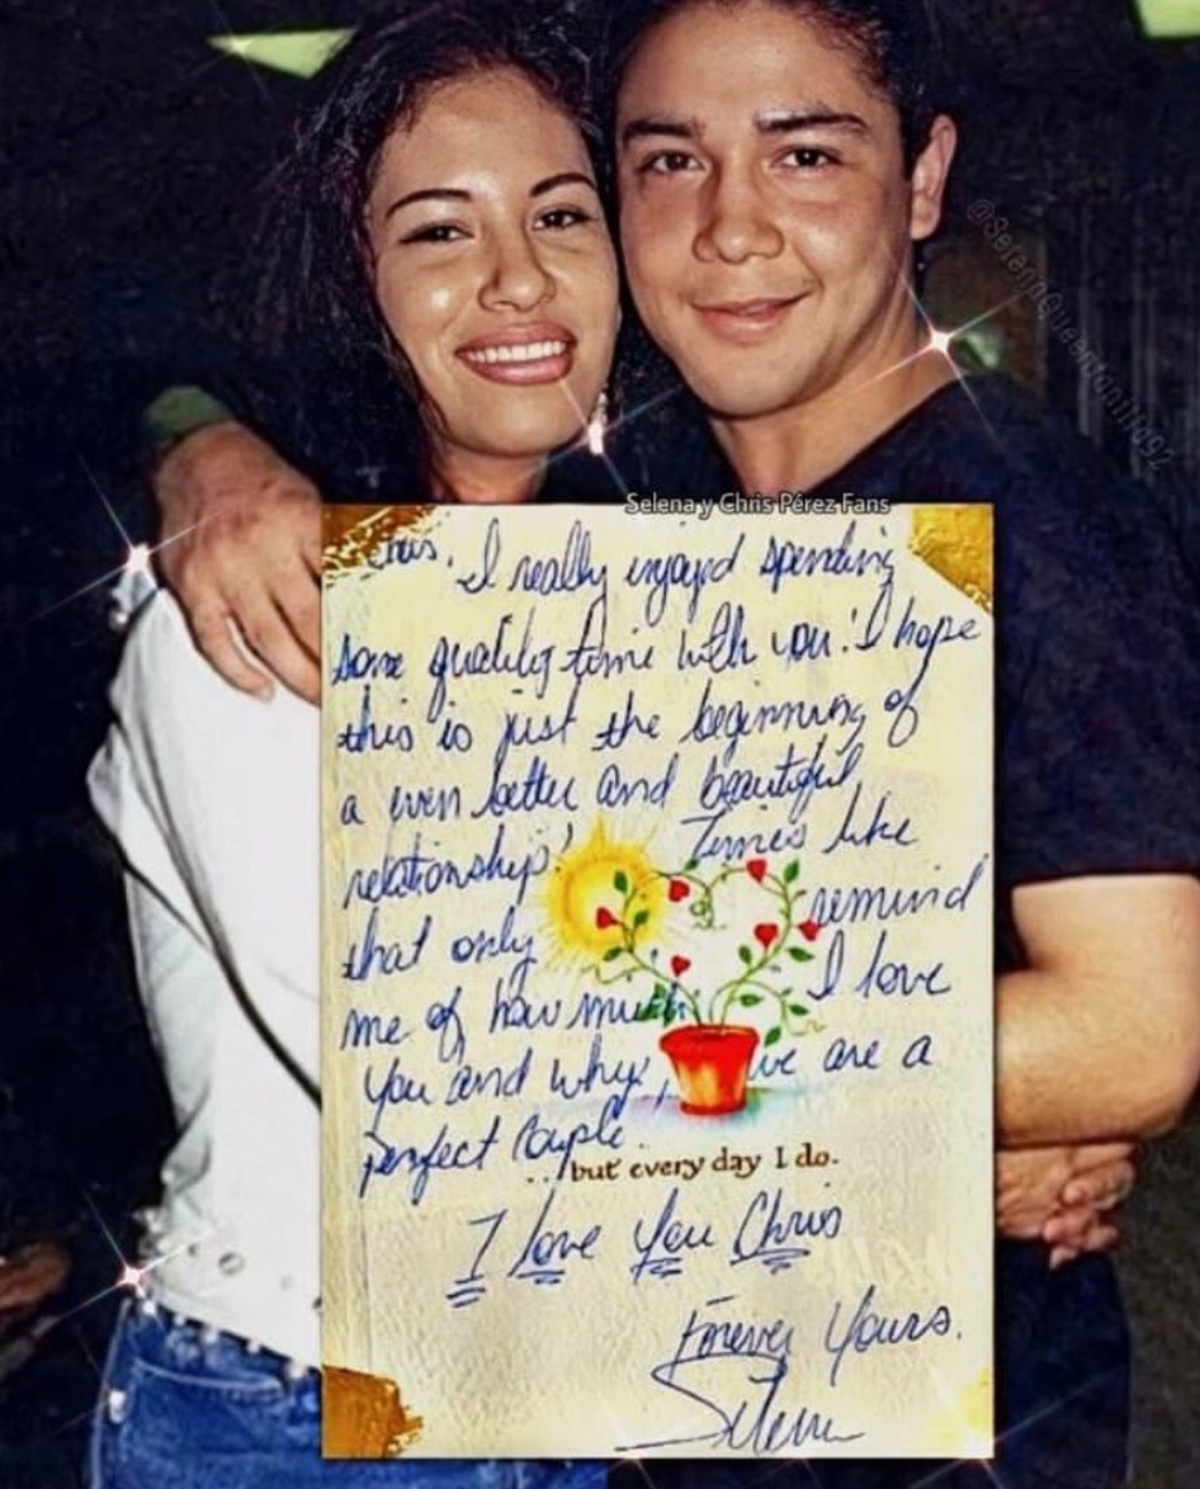 Selena y Chris Pérez Fans
Chris, I really enjoyed spending
some quality time with you! I hope
this is just the beginning of
a even better and beautiful
relationship! Times like
that only remind
me of how much I love
you and why, we are a
perfect couple.
...but every day I do.
I love You Chris
Forever Yours.
Selena